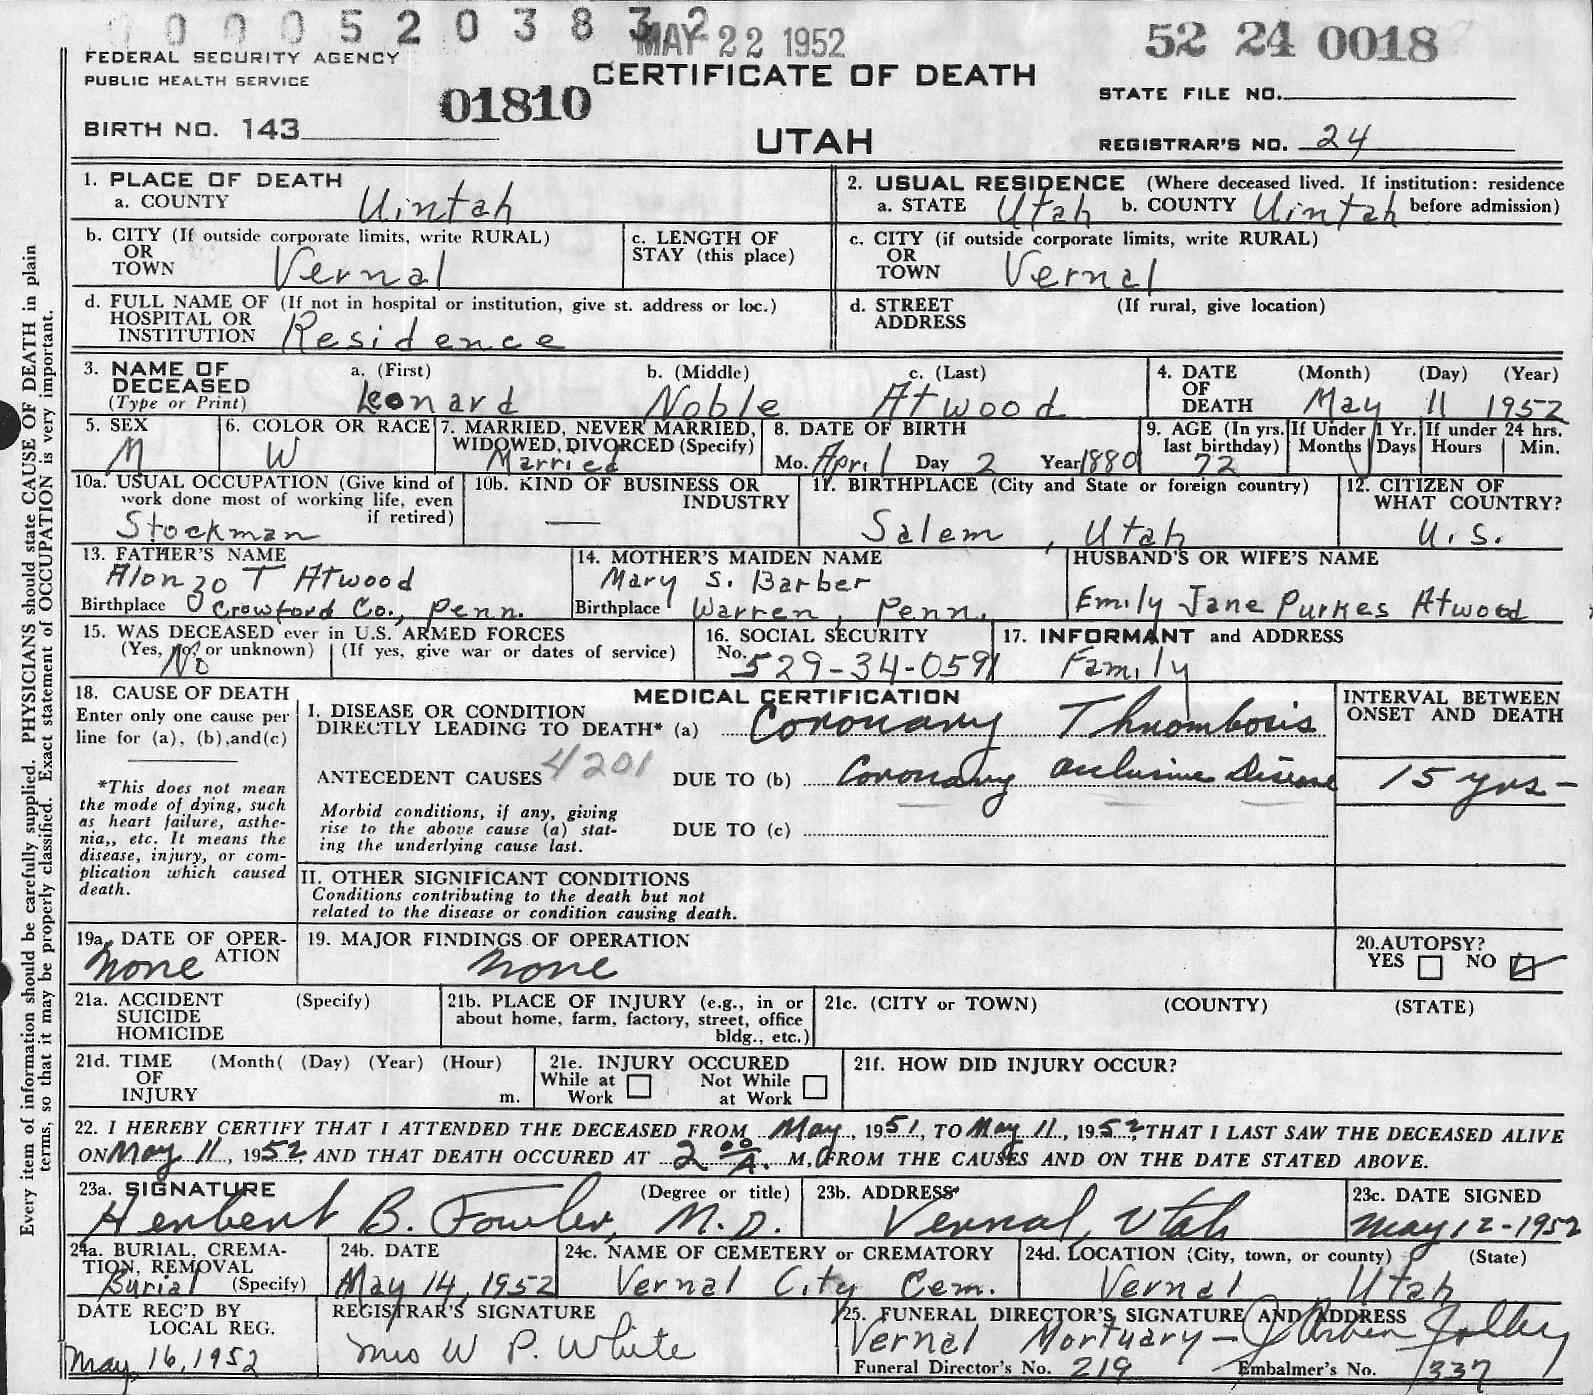 0000520383 2
MAY 22 1952
52 24 0018
FEDERAL SECURITY AGENCY
PUBLIC HEALTH SERVICE
CERTIFICATE OF DEATH
STATE FILE NO.
01810
BIRTH NO. 143
UTAH
REGISTRAR'S NO. 24
1. PLACE OF DEATH
a. COUNTY Uintah
2. USUAL RESIDENCE (Where deceased lived. If institution: residence
a. STATE Utah b. COUNTY Uintah before admission)
b. CITY (If outside corporate limits, write RURAL)
OR
TOWN Vernal
c. LENGTH OF
STAY (this place)
c. CITY (if outside corporate limits, write RURAL)
OR
TOWN Vernal
d. FULL NAME OF (If not in hospital or institution, give st. address or loc.)
HOSPITAL OR
INSTITUTION Residence
d. STREET (If rural, give location)
ADDRESS
3. NAME OF
DECEASED
(Type or Print)
a. (First) b. (Middle) c. (Last)
Leonard Noble Atwood
4. DATE (Month) (Day) (Year)
OF
DEATH May 11 1952
5. SEX
M
6. COLOR OR RACE
W
7. MARRIED, NEVER MARRIED,
WIDOWED, DIVORCED (Specify)
Married
8. DATE OF BIRTH
Mo. April Day 2 Year 1880
9. AGE (In yrs.
last birthday)
72
If Under 1 Yr.
Months Days
If under 24 hrs.
Hours Min.
10a. USUAL OCCUPATION (Give kind of
work done most of working life, even
if retired)
Stockman
10b. KIND OF BUSINESS OR
INDUSTRY
—
11. BIRTHPLACE (City and State or foreign country)
Salem, Utah
12. CITIZEN OF
WHAT COUNTRY?
U.S.
13. FATHER'S NAME
Alonzo T Atwood
Birthplace Crowford Co., Penn.
14. MOTHER'S MAIDEN NAME
Mary S. Barber
Birthplace Warren, Penn.
HUSBAND'S OR WIFE'S NAME
Emily Jane Purkes Atwood
15. WAS DECEASED ever in U.S. ARMED FORCES
(Yes, no, or unknown) (If yes, give war or dates of service)
No
16. SOCIAL SECURITY
No. 529-34-0591
17. INFORMANT and ADDRESS
Family
18. CAUSE OF DEATH
Enter only one cause per
line for (a), (b), and (c)
*This does not mean
the mode of dying, such
as heart failure, asthe-
nia,, etc. It means the
disease, injury, or com-
plication which caused
death.
MEDICAL CERTIFICATION
I. DISEASE OR CONDITION
DIRECTLY LEADING TO DEATH* (a) Coronary Thrombosis
ANTECEDENT CAUSES 4201 DUE TO (b) Coronary occlusive Disease
Morbid conditions, if any, giving
rise to the above cause (a) stat-
ing the underlying cause last.
DUE TO (c)
INTERVAL BETWEEN
ONSET AND DEATH
15 yrs-
II. OTHER SIGNIFICANT CONDITIONS
Conditions contributing to the death but not
related to the disease or condition causing death.
19a. DATE OF OPER-
ATION
None
19. MAJOR FINDINGS OF OPERATION
None
20. AUTOPSY?
YES NO
21a. ACCIDENT (Specify)
SUICIDE
HOMICIDE
21b. PLACE OF INJURY (e.g., in or
about home, farm, factory, street, office
bldg., etc.)
21c. (CITY or TOWN) (COUNTY) (STATE)
21d. TIME (Month( (Day) (Year) (Hour)
OF
INJURY m.
21e. INJURY OCCURED
While at Not While
Work at Work
21f. HOW DID INJURY OCCUR?
22. I HEREBY CERTIFY THAT I ATTENDED THE DECEASED FROM May, 1951, TO May 11, 1952, THAT I LAST SAW THE DECEASED ALIVE
ON May 11, 1952, AND THAT DEATH OCCURED AT 2 00 A. M, FROM THE CAUSES AND ON THE DATE STATED ABOVE.
23a. SIGNATURE (Degree or title)
Herbert B. Fowler, M.D.
23b. ADDRESS
Vernal, Utah
23c. DATE SIGNED
May 12-1952
24a. BURIAL, CREMA-
TION, REMOVAL
Burial (Specify)
24b. DATE
May 14, 1952
24c. NAME OF CEMETERY or CREMATORY
Vernal City Cem.
24d. LOCATION (City, town, or county) (State)
Vernal Utah
DATE REC'D BY
LOCAL REG.
May 16, 1952
REGISTRAR'S SIGNATURE
Mrs W P. White
25. FUNERAL DIRECTOR'S SIGNATURE AND ADDRESS
Vernal Mortuary –
Funeral Director's No. 219 Embalmer's No. 337
Every item of information should be carefully supplied. PHYSICIANS should state CAUSE OF DEATH in plain
terms, so that it may be properly classified. Exact statement of OCCUPATION is very important.